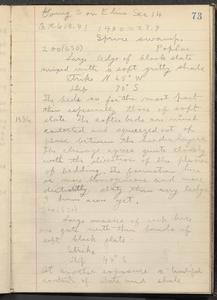 Going S on E line Sec 14
73
Spruce swamp.
200 (630) Poplar
Large ledge of black slate
mixed with a soft gritty shale
Strike N 65° W
Dip 80° S
The beds are for the most part
thin especially those of soft
slate. The softer beds are much
contorted and squeezed out of
place between the harder layers
The cleavage agrees quite closely
with the direction of the planes
of bedding. The formation here
is more ferruginous and more
decidedly slaty than any ledge
I have seen yet.
Large masses of
are gritty with thin bands of
soft black slate
Strike
Dip 45° S
At another exposure a
contact of slate and shale